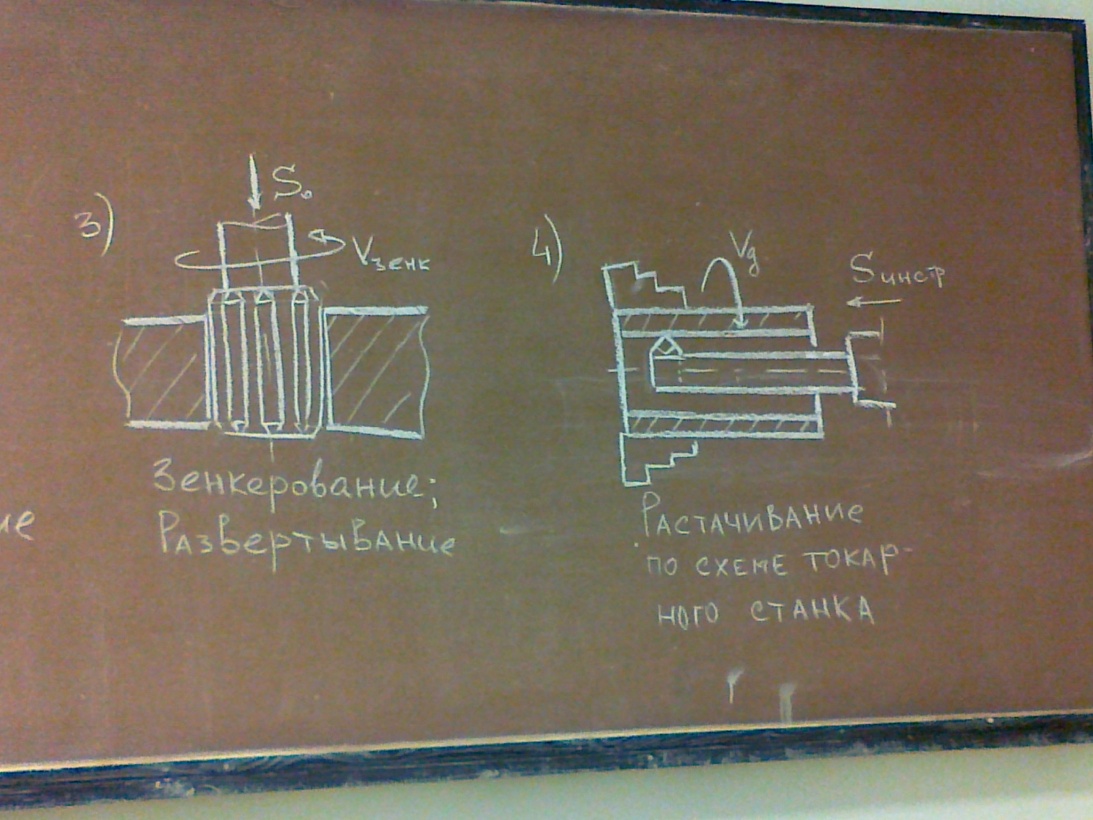 3)
S₀
Vзенк
Зенкерование;
Развертывание
4)
Vд
Sинстр
Растачивание
по схеме токар-
ного станка